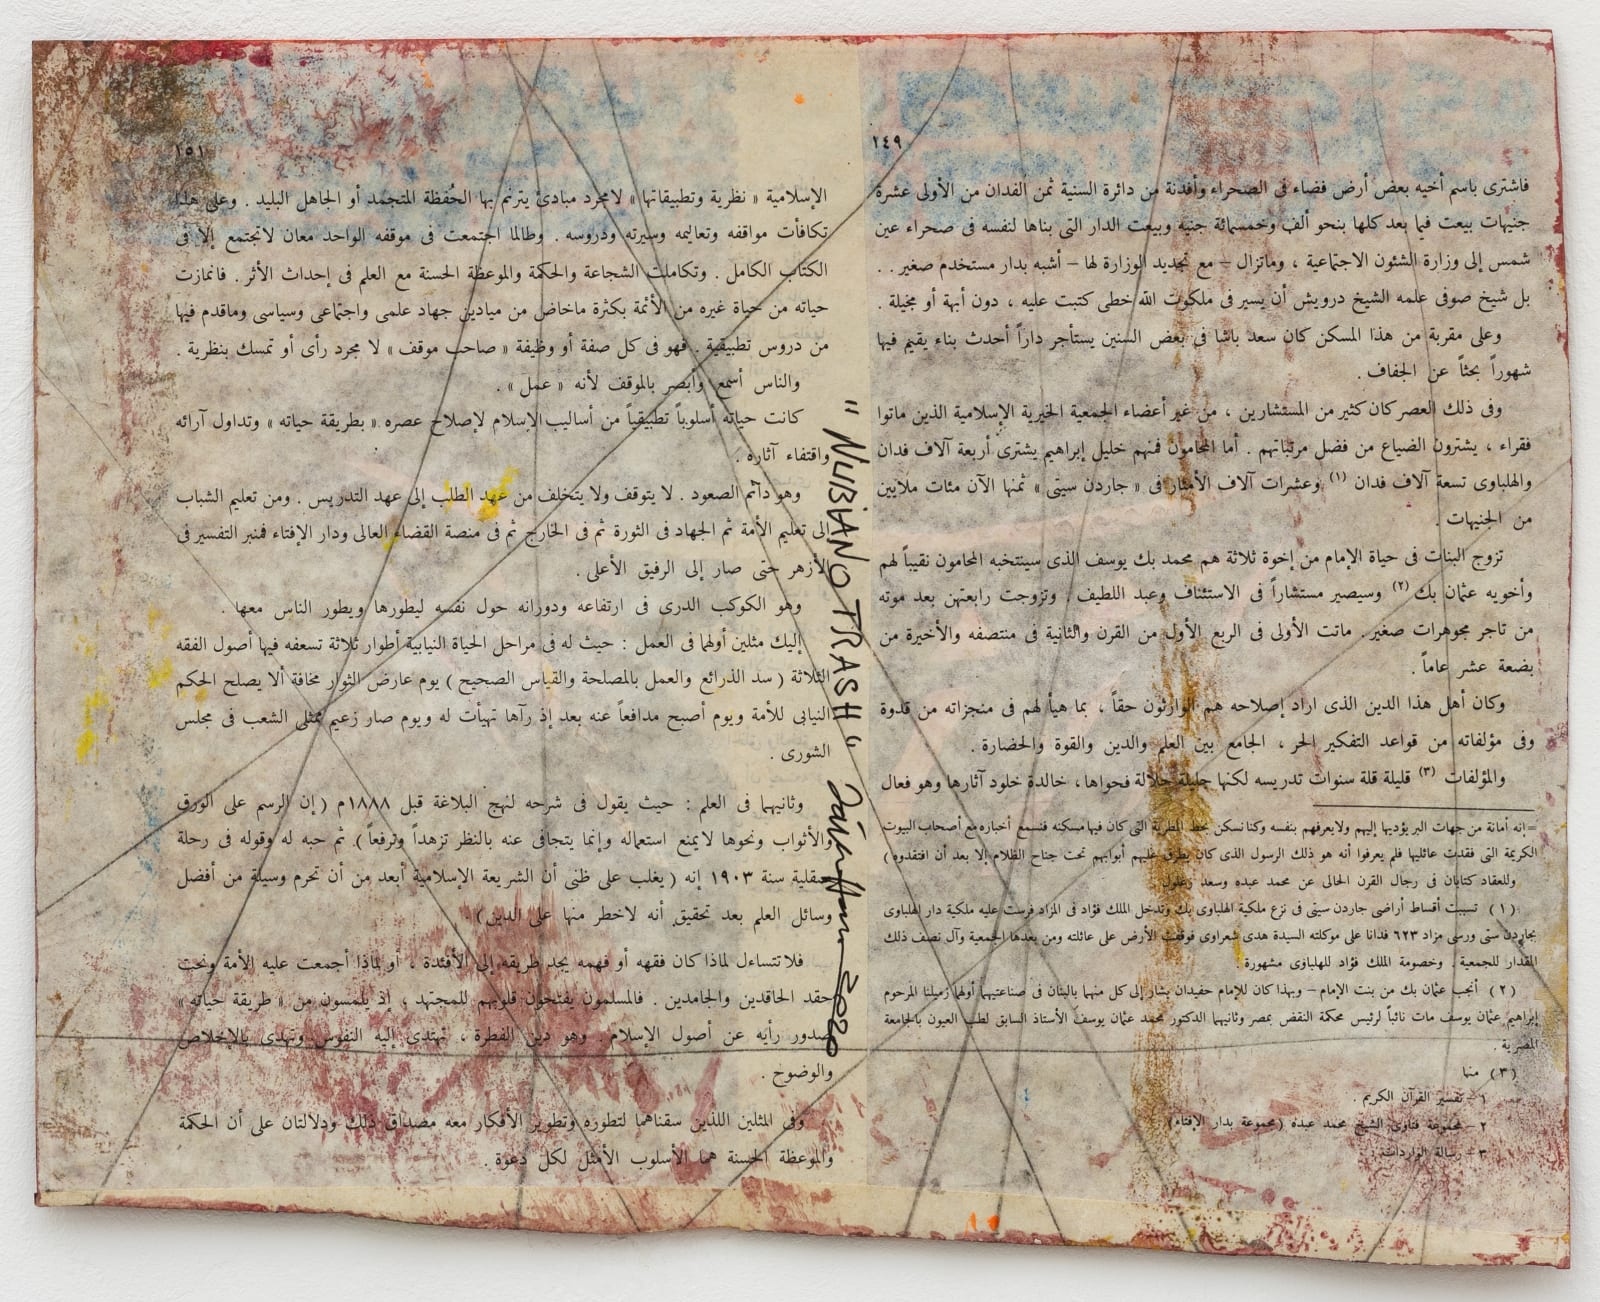 ١٤٩
فاشترى باسم أخيه بعض أرض فضاء فى الصحراء وأفدنة من دائرة السنية ثمن الفدان من الأولى عشرة
جنيهات بيعت فيما بعد كلها بنحو ألف وخمسمائة جنيه وبيعت الدار التى بناها لنفسه فى صحراء عين
شمس إلى وزارة الشئون الاجتماعية ، وماتزال – مع تجديد الوزارة لها – أشبه بدار مستخدم صغير . .
بل شيخ صوفى علمه الشيخ درويش أن يسير فى ملكوت الله خطى كتبت عليه ، دون أبهة أو مخيلة .
وعلى مقربة من هذا المسكن كان سعد باشا فى بعض السنين يستأجر داراً أحدث بناء يقيم فيها
شهوراً بحثاً عن الجفاف .
وفى ذلك العصر كان كثير من المستشارين ، من غير أعضاء الجمعية الخيرية الإسلامية الذين ماتوا
فقراء ، يشترون الضياع من فضل مرتباتهم . أما المحامون فمنهم خليل إبراهيم يشترى أربعة آلاف فدان
والهلباوى تسعة آلاف فدان (١) وعشرات آلاف الأمتار فى « جاردن سيتى » ثمنها الآن مئات ملايين
من الجنيهات .
تزوج البنات فى حياة الإمام من إخوة ثلاثة هم محمد بك يوسف الذى سينتخبه المحامون نقيباً لهم
وأخويه عثمان بك (٢) وسيصير مستشاراً فى الاستئناف وعبد اللطيف . وتزوجت رابعتهن بعد موته
من تاجر مجوهرات صغير . ماتت الأولى فى الربع الأول من القرن والثانية فى منتصفه والأخيرة من
بضعة عشر عاماً .
وكان أهل هذا الدين الذى اراد إصلاحه هم الوارثون حقاً ، بما هيأ لهم فى منجزاته من قدوة
وفى مؤلفاته من قواعد التفكير الحر ، الجامع بين العلم والدين والقوة والحضارة .
والمؤلفات (٣) قليلة قلة سنوات تدريسه لكنها جليلة جلالة فحواها ، خالدة خلود آثارها وهو فعال
=إنه أمانة من جهات البر يؤديها إليهم ولايعرفهم بنفسه وكنا نسكن بخط المطرية التى كان فيها مسكنه فنسمع أخباره مع أصحاب البيوت
الكريمة التى فقدت عائليها فلم يعرفوا أنه هو ذلك الرسول الذى كان يطرق عليهم أبوابهم تحت جناح الظلام إلا بعد أن افتقدوه )
وللعقاد كتابان فى رجال القرن الحالى عن محمد عبده وسعد زغلول
(١) تسببت أقساط أراضى جاردن سيتى فى نزع ملكية الهلباوى بك وتدخل الملك فؤاد فى المزاد فرست عليه ملكية دار الهلباوى
بجاردن ستى ورسى مزاد ٦٢٣ فدانا على موكلته السيدة هدى شعراوى فوقفت الأرض على عائلته ومن بعدها الجمعية وآل نصف ذلك
المقدار للجمعية . وخصومة الملك فؤاد للهلباوى مشهورة .
(٢) أنجب عثمان بك من بنت الإمام – وبهذا كان للإمام حفيدان يشار إلى كل منهما بالبنان فى صناعتيهما أولها زميلنا المرحوم
إبراهيم عثمان يوسف مات نائباً لرئيس محكمة النقض بمصر وثانيهما الدكتور محمد عثمان يوسف الأستاذ السابق لطب العيون بالجامعة
المصرية .
(٣) منها
١ – تفسير القرآن الكريم .
٢ – مجموعة فتاوى الشيخ محمد عبده (مجموعة بدار الإفتاء)
٣ – رسالة الواردات .
"NUBIANO TRASH"
2020
١٥١
الإسلامية « نظرية وتطبيقاتها » لامجرد مبادئ يترنم بها الحُفظة المتجمد أو الجاهل البليد . وعلى هذا
تكافأت مواقفه وتعاليمه وسيرته ودروسه . وطالما اجتمعت فى موقفه الواحد معان لاتجتمع إلا فى
الكتاب الكامل . وتكاملت الشجاعة والحكمة والموعظة الحسنة مع العلم فى إحداث الأثر . فانمازت
حياته من حياة غيره من الأئمة بكثرة ماخاض من ميادين جهاد علمى واجتماعى وسياسى وماقدم فيها
من دروس تطبيقية . فهو فى كل صفة أو وظيفة « صاحب موقف » لا مجرد رأى أو تمسك بنظرية .
والناس أسمع وأبصر بالموقف لأنه « عمل » .
كانت حياته أسلوباً تطبيقياً من أساليب الإسلام لإصلاح عصره « بطريقة حياته » وتداول آرائه
واقتفاء آثاره .
وهو دائم الصعود . لا يتوقف ولا يتخلف من عهد الطلب إلى عهد التدريس . ومن تعليم الشباب
إلى تعليم الأمة ثم الجهاد فى الثورة ثم فى الخارج ثم فى منصة القضاء العالى ودار الإفتاء فمنبر التفسير فى
الأزهر حتى صار إلى الرفيق الأعلى .
وهو الكوكب الدرى فى ارتفاعه ودورانه حول نفسه ليطورها ويطور الناس معها .
إليك مثلين أولهما فى العمل : حيث له فى مراحل الحياة النيابية أطوار ثلاثة تسعفه فيها أصول الفقه
الثلاثة ( سد الذرائع والعمل بالمصلحة والقياس الصحيح ) يوم عارض الثوار مخافة ألا يصلح الحكم
النيابى للأمة ويوم أصبح مدافعاً عنه بعد إذ رآها تهيأت له ويوم صار زعيم ممثلى الشعب فى مجلس
الشورى .
وثانيهما فى العلم : حيث يقول فى شرحه لنهج البلاغة قبل ١٨٨٨م ( إن الرسم على الورق
والأثواب ونحوها لايمنع استعماله وإنما يتجافى عنه بالنظر تزهداً وترفعاً ). ثم حبه له وقوله فى رحلة
صقلية سنة ١٩٠٣ إنه ( يغلب على ظنى أن الشريعة الإسلامية أبعد من أن تحرم وسيلة من أفضل
وسائل العلم بعد تحقيق أنه لاخطر منها على الدين )
فلا تتساءل لماذا كان فقهه أو فهمه يجد طريقه إلى الأفئدة ، أو لماذا أجمعت عليه الأمة ونحت
حقد الحاقدين والجامدين . فالمسلمون يفتحون قلوبهم للمجتهد ، إذ يلمسون من « طريقة حياته »
صدور رأيه عن أصول الإسلام . وهو دين الفطرة ، تهتدى إليه النفوس وتهدى بالإخلاص
والوضوح .
وفى المثلين اللذين سقناهما لتطوره وتطوير الأفكار معه مصداق ذلك ودلالتان على أن الحكمة
والموعظة الحسنة هما الأسلوب الأمثل لكل دعوة .